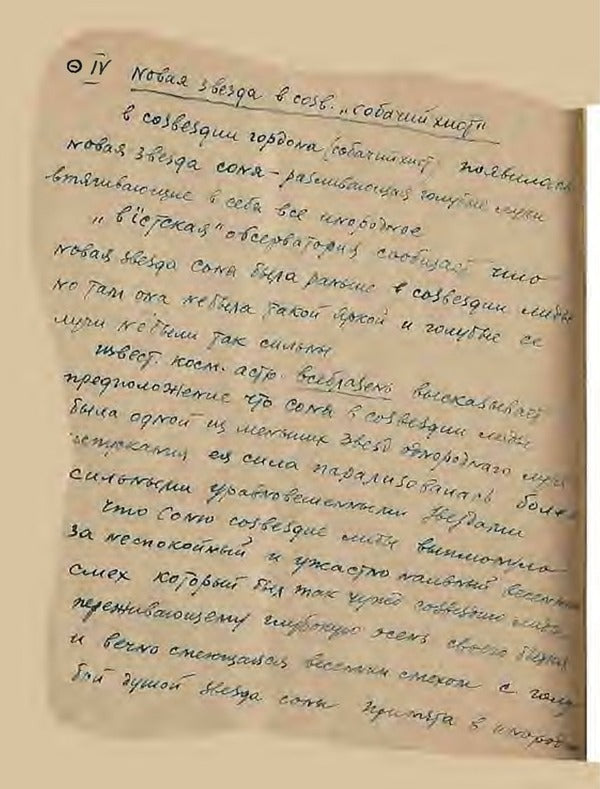 ⊖ IV Новая звезда в созв. „собачий хист"
в созвездии гордона (собачий хист) появилась
новая звезда соня – разливающая голубые лучи
втягивающие в себя все инородное
„вiстская" обсерватория сообщает что
новая звезда соня была раньше в созвездии лиды
но там она не была такой яркой и голубые ее
лучи не были так сильны
извест. косм. астр. всебразень высказывает
предположение что соня в созвездии лиды
была одной из меньших звезд однороднаго луча
испускания ея сила парализовалась более
сильными уравновешенными звездами
что Соню созвездие лиды вытолкнуло
за неспокойный и ужастно наивный веселый
смех который был так чужд созвездию лиды
переживающему глубокую осень своего бытия
и вечно смеющаяся веселым смехом с голу
бой душой звезда соня принята в инород